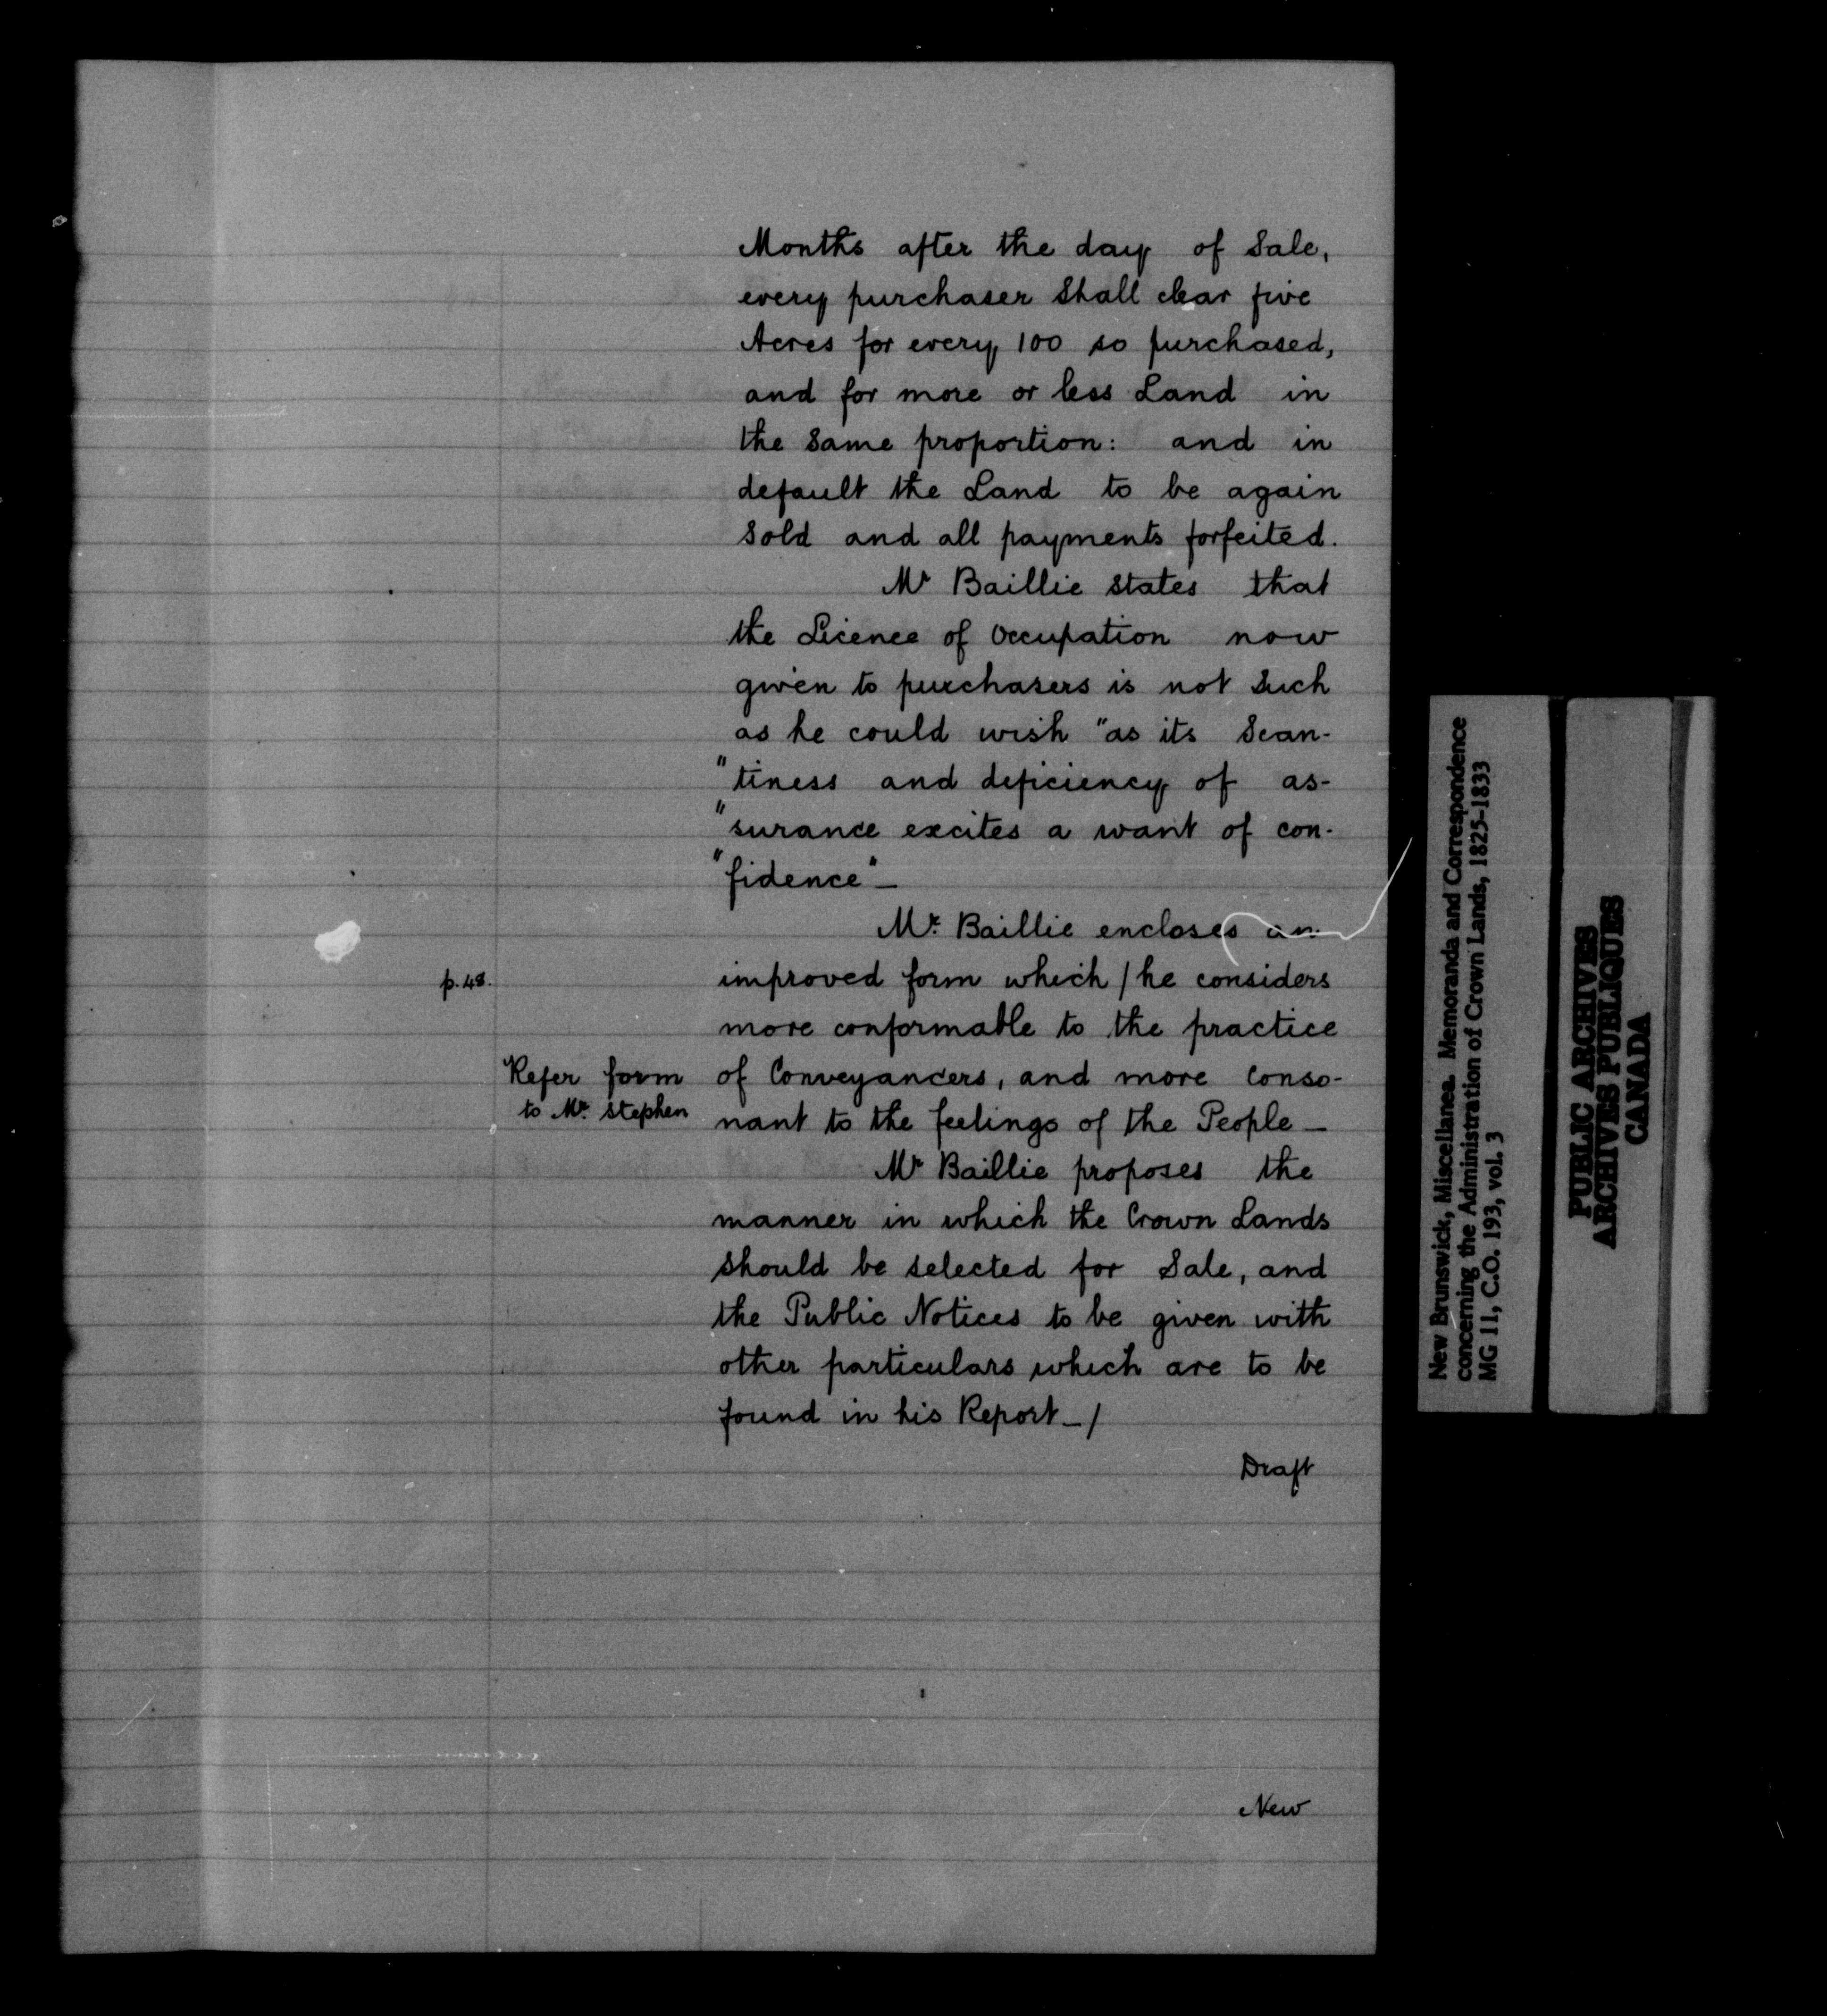 Months after the day of Sale,
every purchaser Shall clear five
Acres for every 100 so purchased,
and for more or less Land in
the Same proportion: and in
default the Land to be again
Sold and all payments forfeited.
Mr Baillie states that
the Licence of Occupation now
given to purchasers is not Such
as he could wish "as its Scan-
"tiness and deficiency of as-
"surance excites a want of con-
"fidence"_
Mr. Baillie encloses an
p.48.
improved form which / he considers
more conformable to the practice
Refer form
to Mr. Stephen
of Conveyancers, and more Conso-
nant to the feelings of the People_
Mr Baillie proposes the
manner in which the Crown Lands
Should be selected for Sale, and
the Public Notices to be given with
other particulars which are to be
found in his Report_/
Draft
New
New Brunswick, Miscellanea. Memoranda and Correspondence
concerning the Administration of Crown Lands, 1825-1833
MG 11, C.O. 193, vol. 3
PUBLIC ARCHIVES
ARCHIVES PUBLIQUES
CANADA